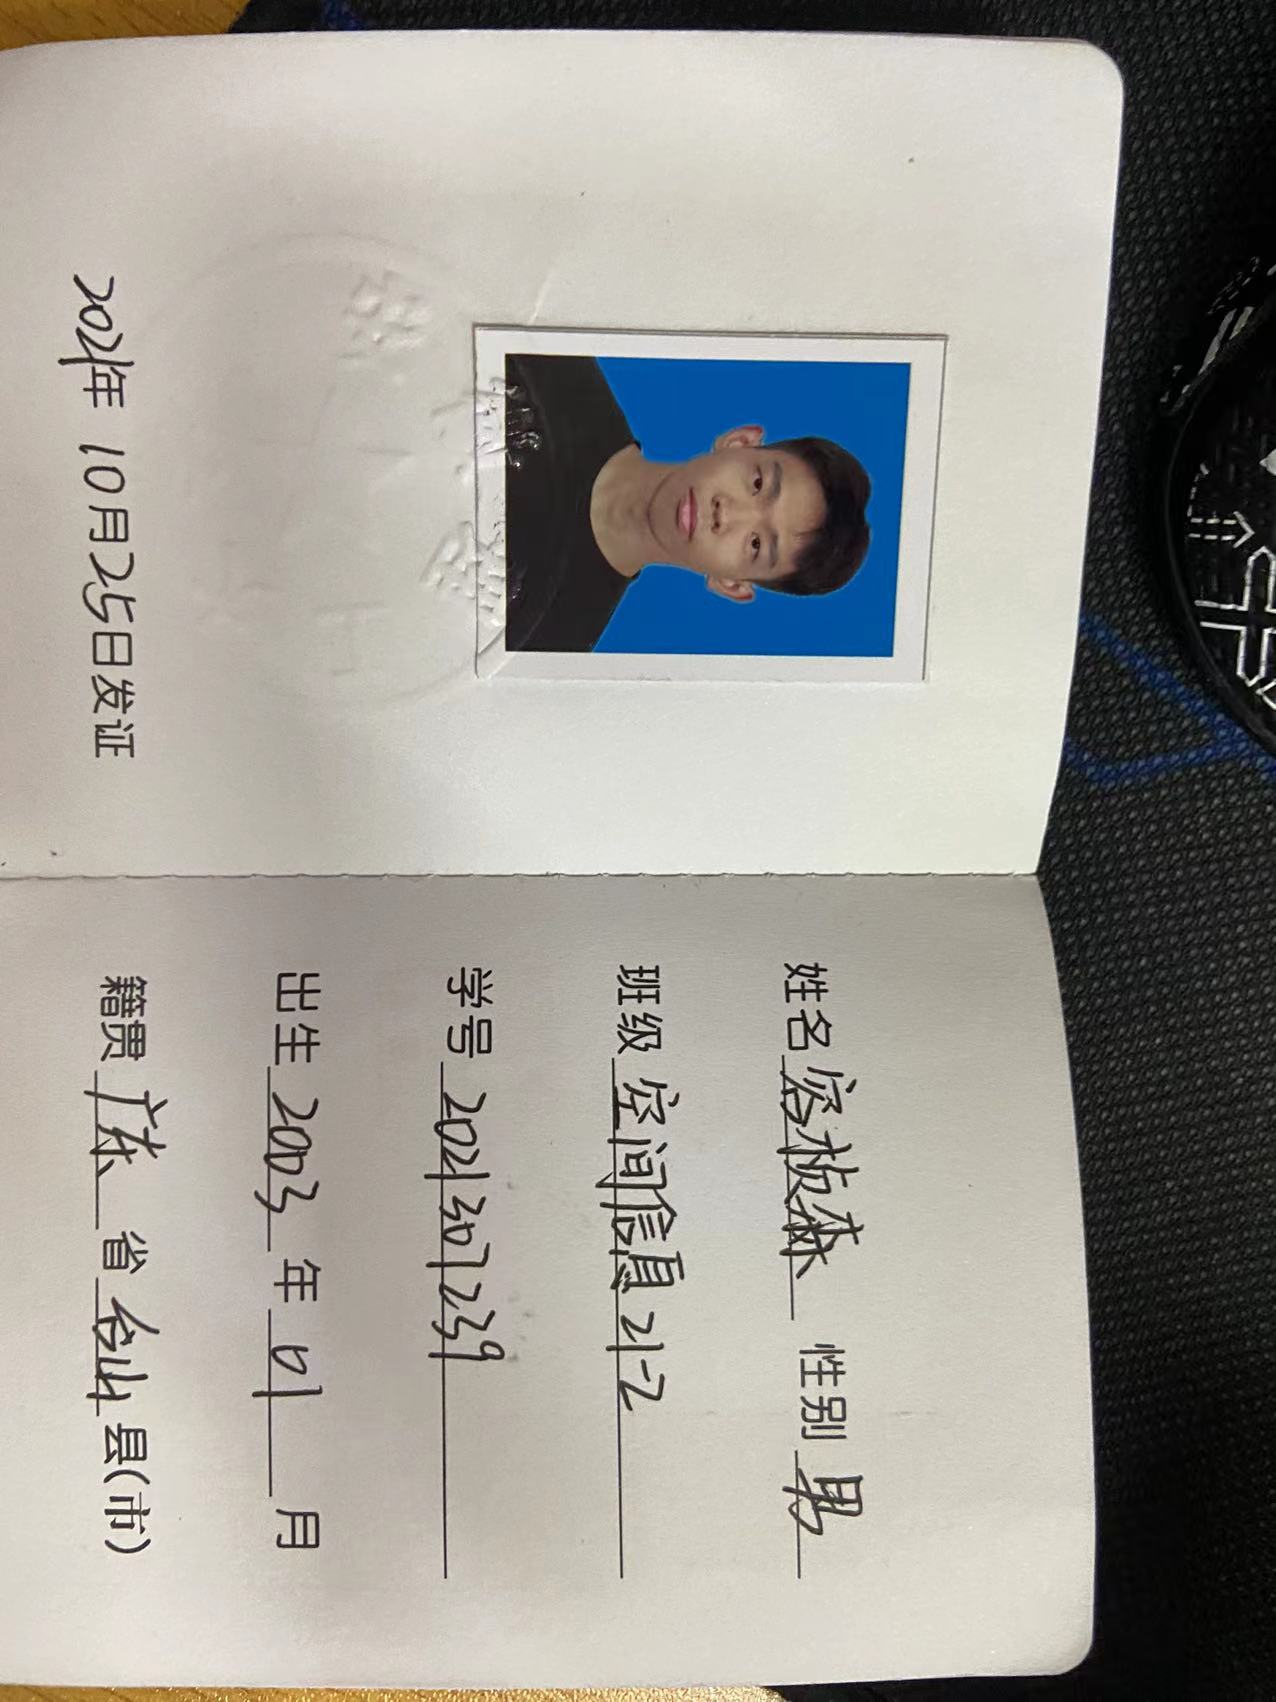 2021年10月25日发证
姓名 容桢森 性别 男
班级 空间信息21-2
学号 2021307239
出生 2003 年 01 月
籍贯 广东 省 台山 县(市)